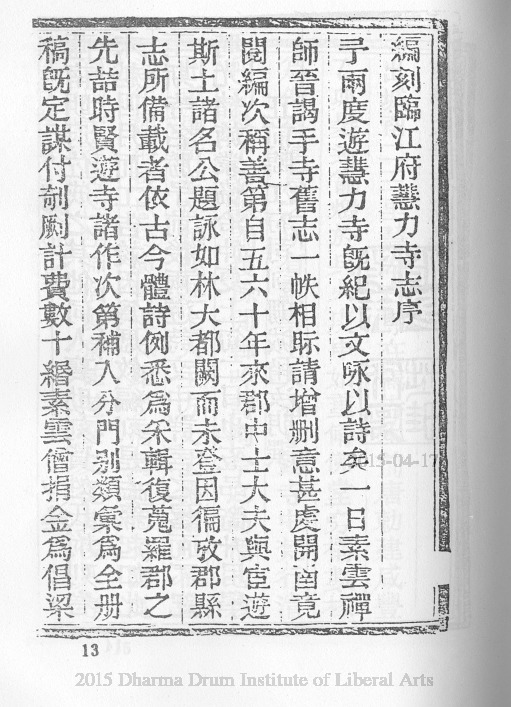 編刻臨江府慧力寺志序
予兩度遊慧力寺旣紀以文咏以詩矣一日素雲禪
師晉謁手寺舊志一帙相眎請增删意甚虔開函竟
閱編次稱善第自五六十年來郡中士大夫與宦遊
斯土諸名公題詠如林大都闕而未登因徧攷郡縣
志所備載者依古今體詩例悉爲采輯復蒐羅郡之
先喆時賢遊寺諸作次第補入分門别類彙爲全册
稿旣定謀付剞劂計費數十緡素雲僧捐金爲倡梁
13
2015-04-17
2015 Dharma Drum Institute of Liberal Arts